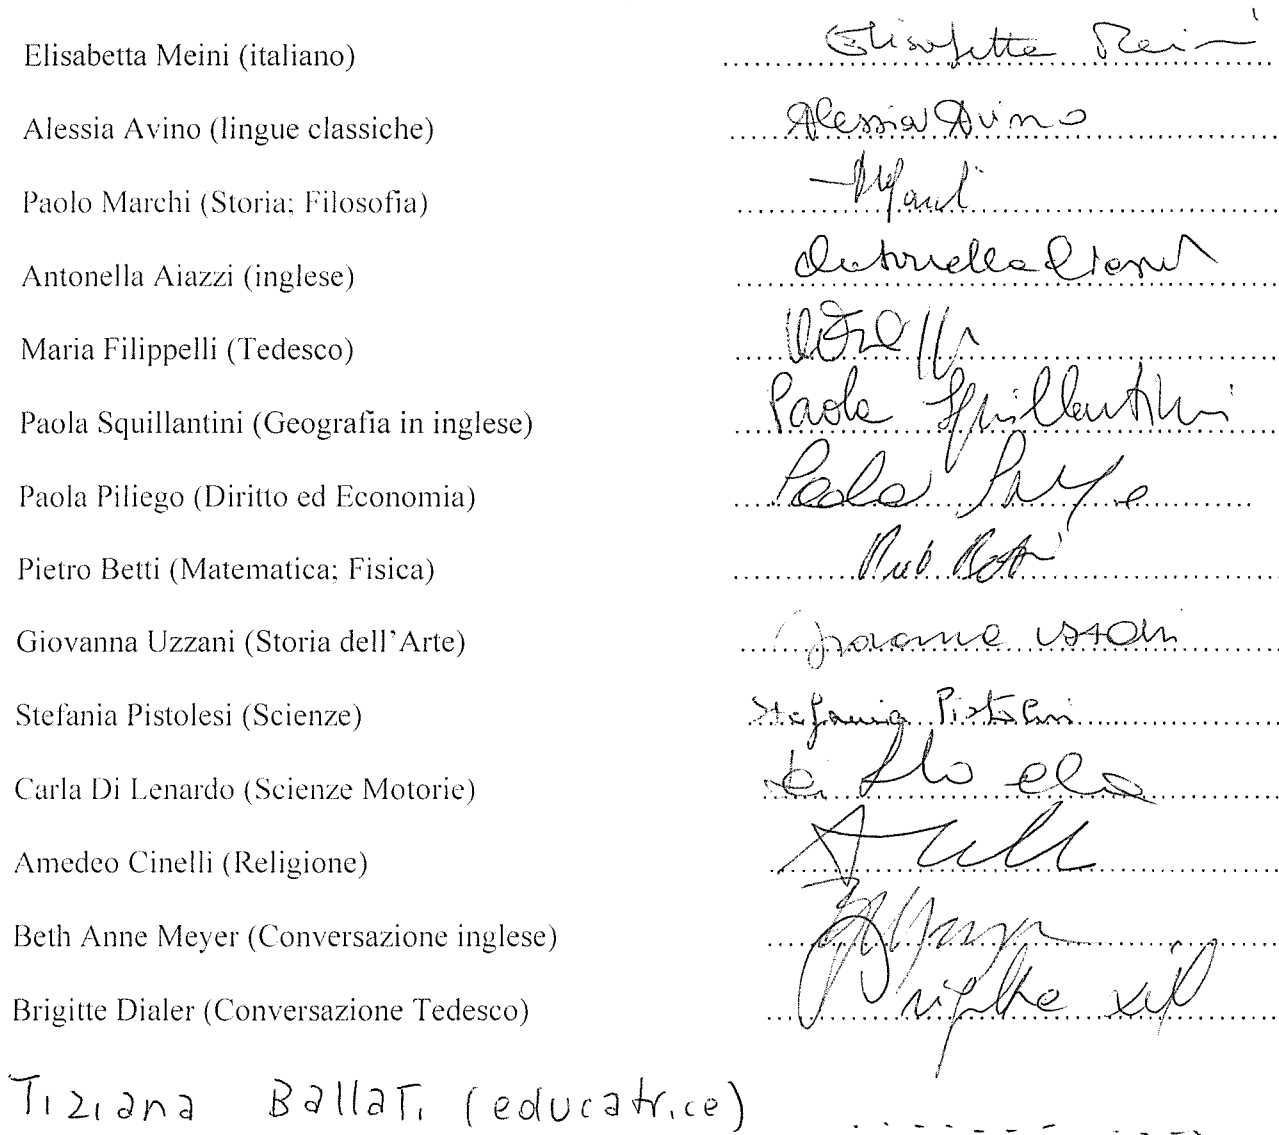 Elisabetta Meini (italiano) Elisabetta Meini
Alessia Avino (lingue classiche) Alessia Avino
Paolo Marchi (Storia; Filosofia)
Antonella Aiazzi (inglese) Antonella Aiazzi
Maria Filippelli (Tedesco)
Paola Squillantini (Geografia in inglese) Paola Squillantini
Paola Piliego (Diritto ed Economia) Paola
Pietro Betti (Matematica; Fisica) Betti
Giovanna Uzzani (Storia dell'Arte) Giovanna Uzzani
Stefania Pistolesi (Scienze) Stefania Pistolesi
Carla Di Lenardo (Scienze Motorie)
Amedeo Cinelli (Religione)
Beth Anne Meyer (Conversazione inglese)
Brigitte Dialer (Conversazione Tedesco) Brigitte
Tiziana Ballati (educatrice)